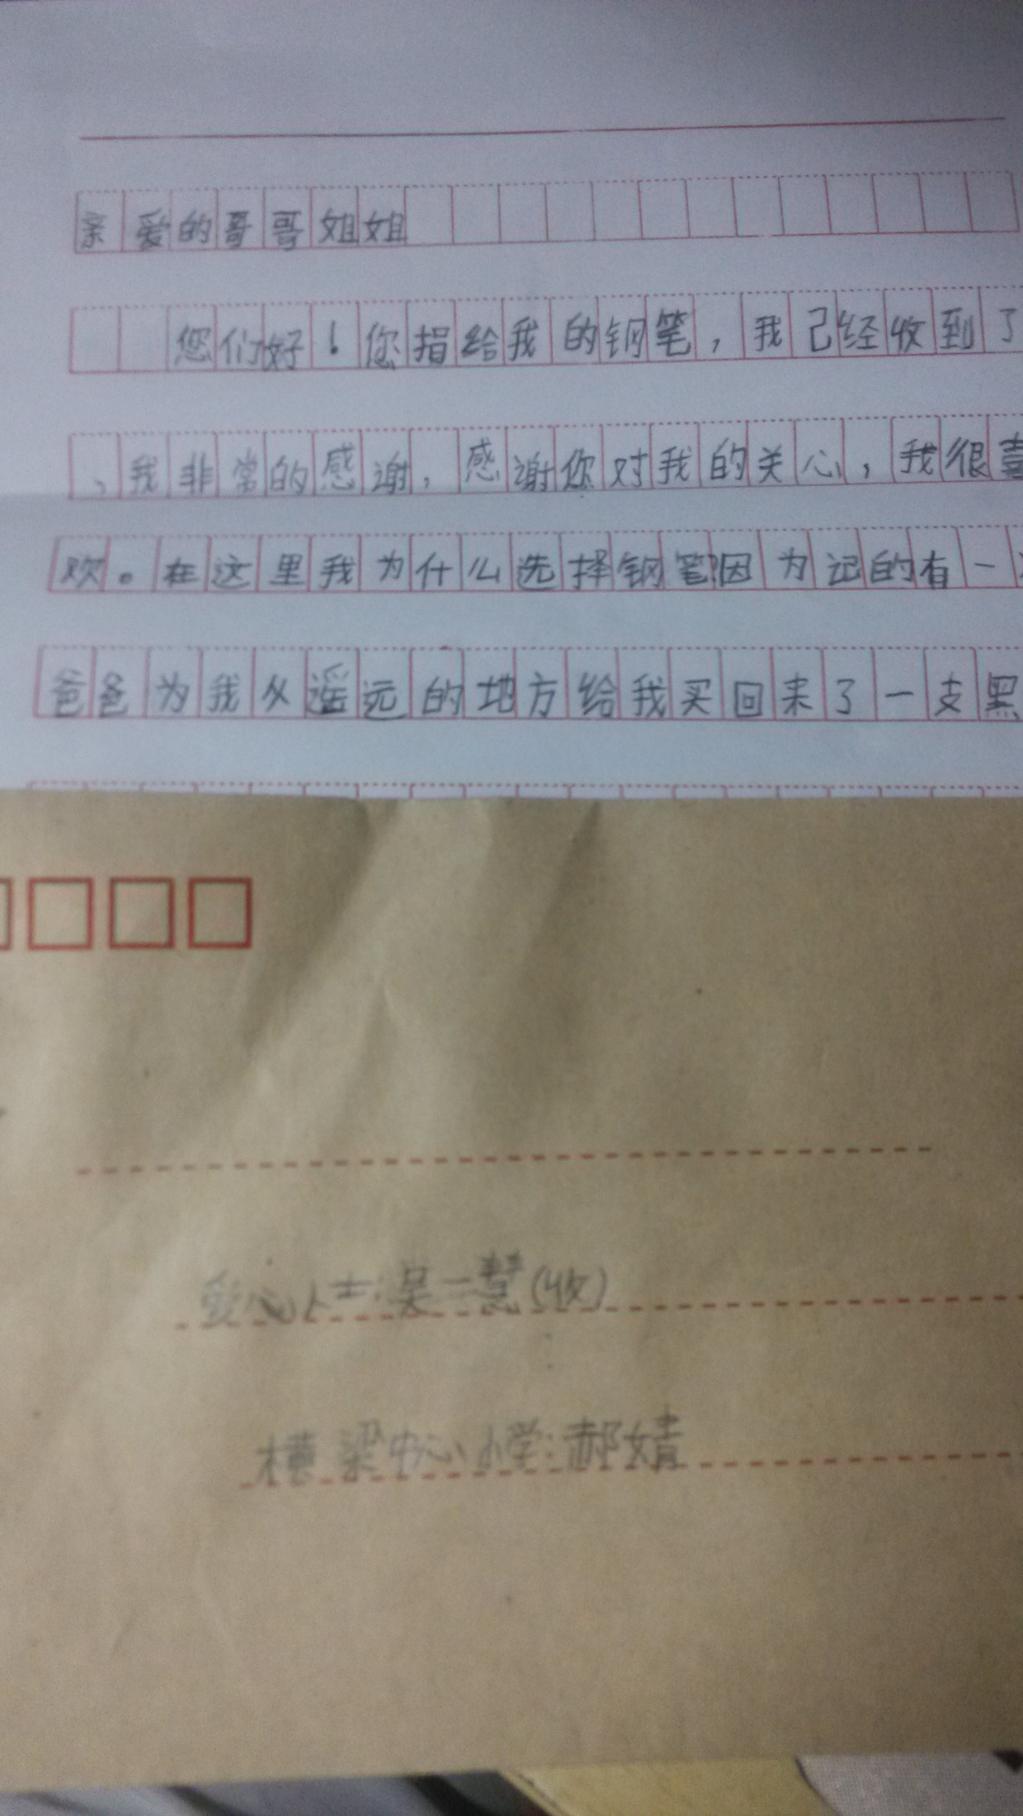 亲爱的哥哥姐姐
您们好！您指给我的钢笔，我己经收到了
，我非常的感谢，感谢你对我的关心，我很喜
欢。在这里我为什么选择钢笔因为记的有一
爸爸为我从遥远的地方给我买回来了一支黑
爱心人士:吴一慧(收)
横梁中心小学:郝婧